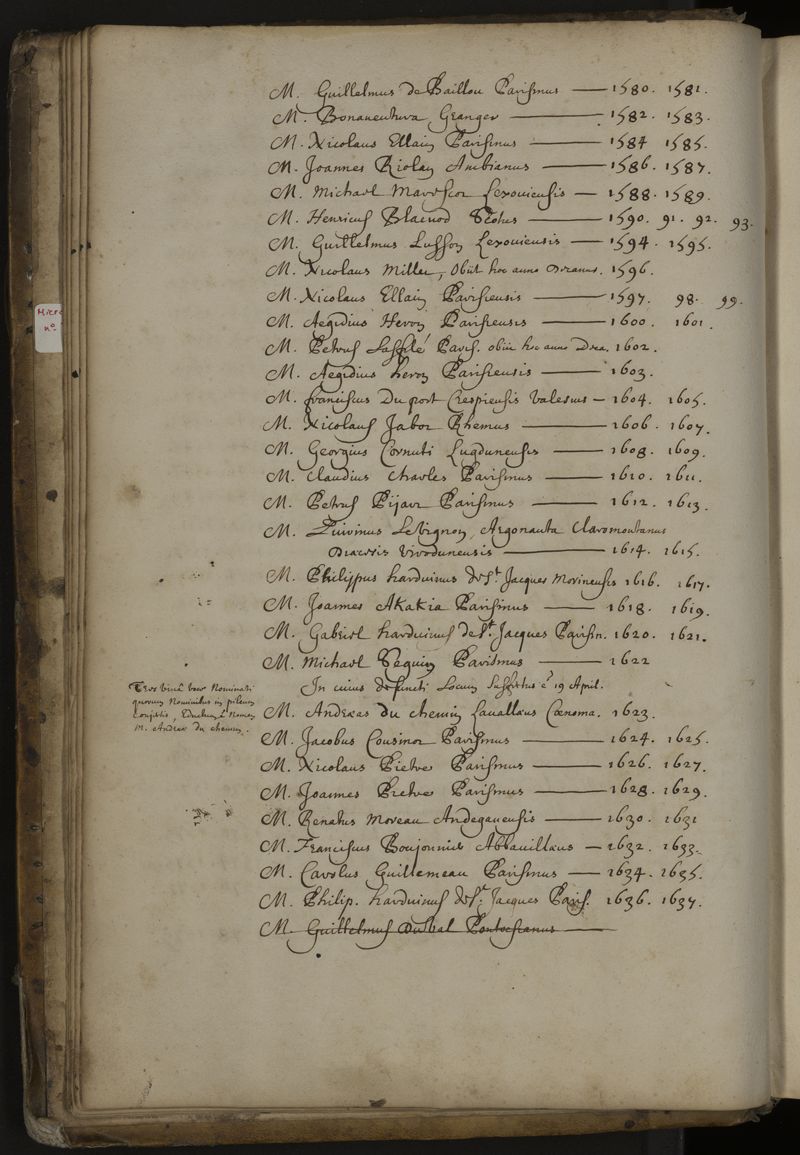 M. Guillelmus de Baillou Parisinus — 1580. 1581.
M. Bonauentura Granger — 1582. 1583.
M. Nicolaus Ellain Parisinus — 1584 1585.
M. Joannes Riolan Ambianus — 1586. 1587.
M. Michael Marescot Lexouiensis — 1588. 1589.
M. Henricus Blacuod Scotus — 1590. 91. 92. 93.
M. Guillelmus Lusson Lexouiensis — 1594. 1595.
M. Nicolaus Millet, obiit hoc anno Decanus. 1596.
M. Nicolaus Ellain Parisiensis — 1597. 98. 99.
M. Aegidius Heron Parisiensis — 1600. 1601.
M. Petrus Laffilé Paris. obiit hoc anno Deca. 1602.
M. Aegidius heron Parisiensis — 1603.
M. franciscus Du port Crespiensis Valesius — 1604. 1605.
M. Nicolaus Jabot Rhemus — 1606. 1607.
M. Georgius Cornuti Lugdunensis — 1608. 1609.
M. Claudius Charles Parisinus — 1610. 1611.
M. Petrus Pijart Parisinus — 1612. 1613.
M. LeVignon, Argonauta Claromontanus
Diœcesis Virodunensis — 1614. 1615.
M. Philippus harduinus de St. Jacques Morinensis 1616. 1617.
M. Joannes Akakia Parisinus — 1618. 1619.
M. Gabriel harduinus de St. Jacques Parisin. 1620. 1621.
M. Michael Seguin Parisinus — 1622
In cuius defuncti Locum suffectus e 19 April.
Tres nominati
quorum Nominibus in pileum
coniectis, Eductum Nomen
M. Andreæ du chemin.
M. Andreas du chemin Lauallæus Cœnoma. 1623.
M. Jacobus Cousinot Parisinus — 1624. 1625.
M. Nicolaus Pietre Parisinus — 1626. 1627.
M. Joannes Pietre Parisinus — 1628. 1629.
M. Renatus Moreau Andegauensis — 1630. 1631
M. Franciscus Boujonnier Abbauillæus — 1632. 1633.
M. Carolus Guillemeau Parisinus — 1634. 1635.
M. Philip. harduinus de St. Jacques Paris. 1636. 1637.
M. Guillelmus DuVal Pontoesianus —
Micro
nº